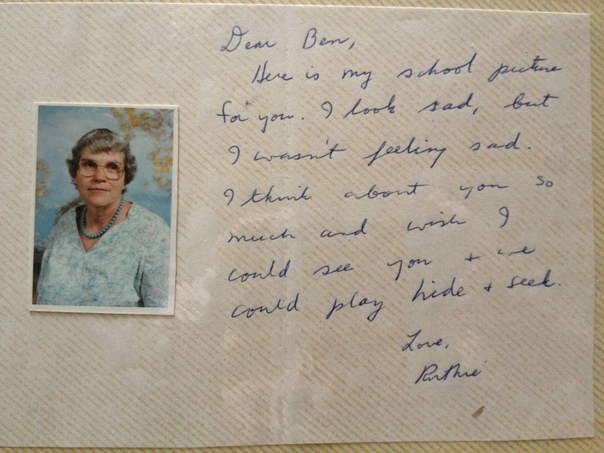 Dear Ben,
Here is my school picture
for you. I look sad, but
I wasn't feeling sad.
I think about you so
much and wish I
could see you + we
could play hide + seek.
Love,
Ruthie